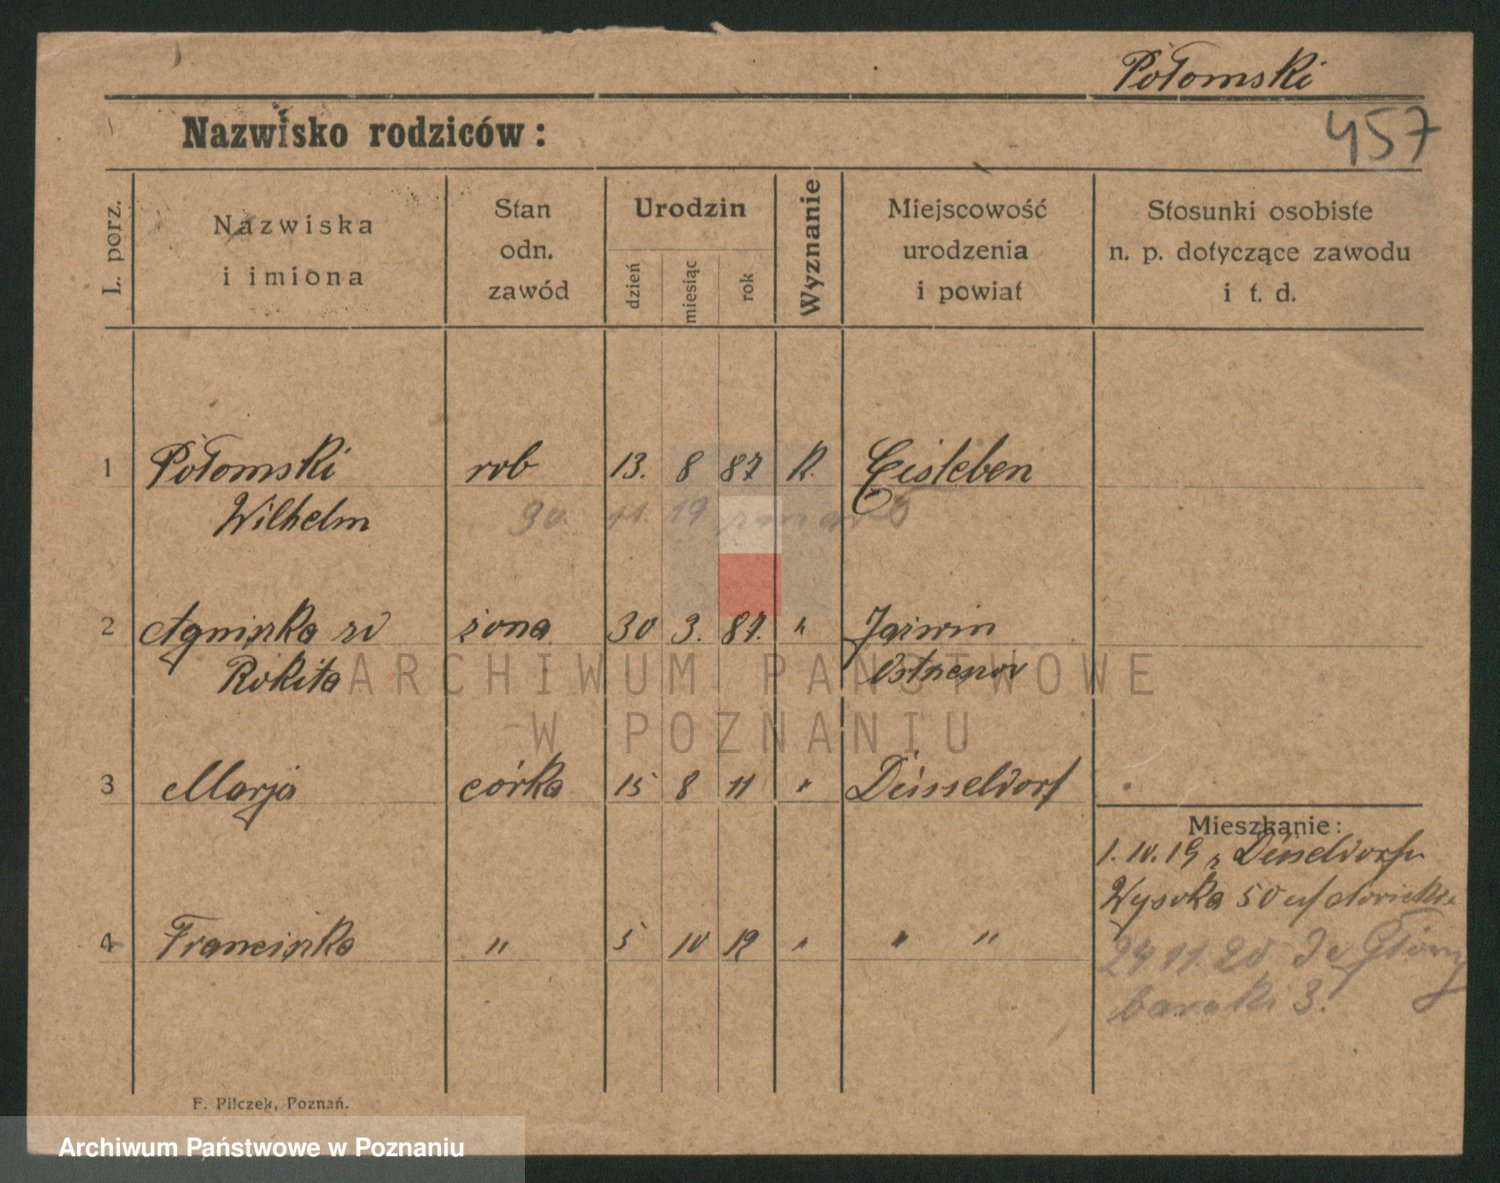 Połomski
457
Nazwisko rodziców:
L. porz.
Nazwiska
i imiona
Stan
odn.
zawód
Urodzin
dzień
miesiąc
rok
Wyznanie
Miejscowość
urodzenia
i powiat
Stosunki osobiste
n. p. dotyczące zawodu
i t. d.
1 Połomski rob 13. 8 87 K. Eisleben
Wilhelm
2 Agniszka żona 30 3. 87. "
Rokita
3 Marja córka 15 8 11 " Düsseldorf
Mieszkanie:
1. 10. 19 z Düsseldorfu
Wysoka 50
4 Franciszka " 5 10 12 " " "
24 11. 20
baraki 3.
ARCHIWUM PAŃSTWOWE
W POZNANIU
F. Pilczek, Poznań.
Archiwum Państwowe w Poznaniu